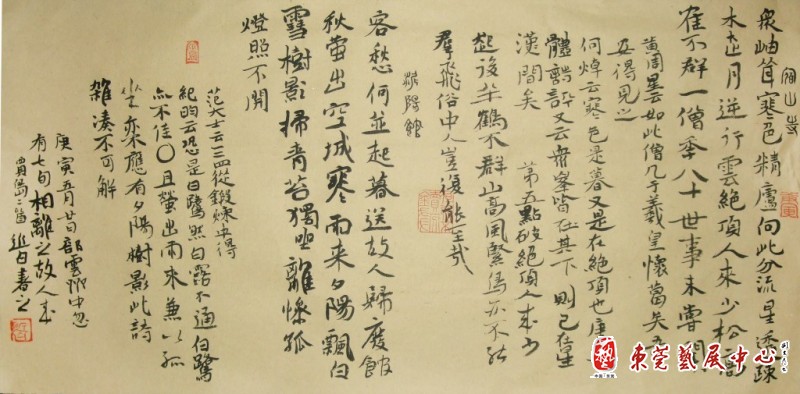 宿山寺
衆岫耸寒色精廬向此分流星透疎
木走月逆行雲絶頂人来少松高
隺不群一僧季八十世事未嘗聞
黄周星云如此僧几于羲皇懷葛矣
安得見之
何焯云寒色是暮又是在絶頂也
體誇評又云衆峯皆在其下則已在星
漢間矣 第五點破絶頂人来少
起後半鶴不群山高風緊鳥亦不能
羣飛俗中人豈復能至哉
滁陽館
客愁何並起暮送故人歸廢館
秋螢出空城寒雨来夕陽飄白
露樹影掃青苔獨坐離惨孤
燈照不開
范大士云三四從鍛煉中得
紀昀云恐是白鷺然白露不通白鷺
亦不佳〇且螢出雨来兼以孤
坐亦應有夕陽樹影此詩
雜凑不可解
庚寅五月廿日 中忽
有七旬相離之故人来
賈島二首 書之
東莞藝展中心